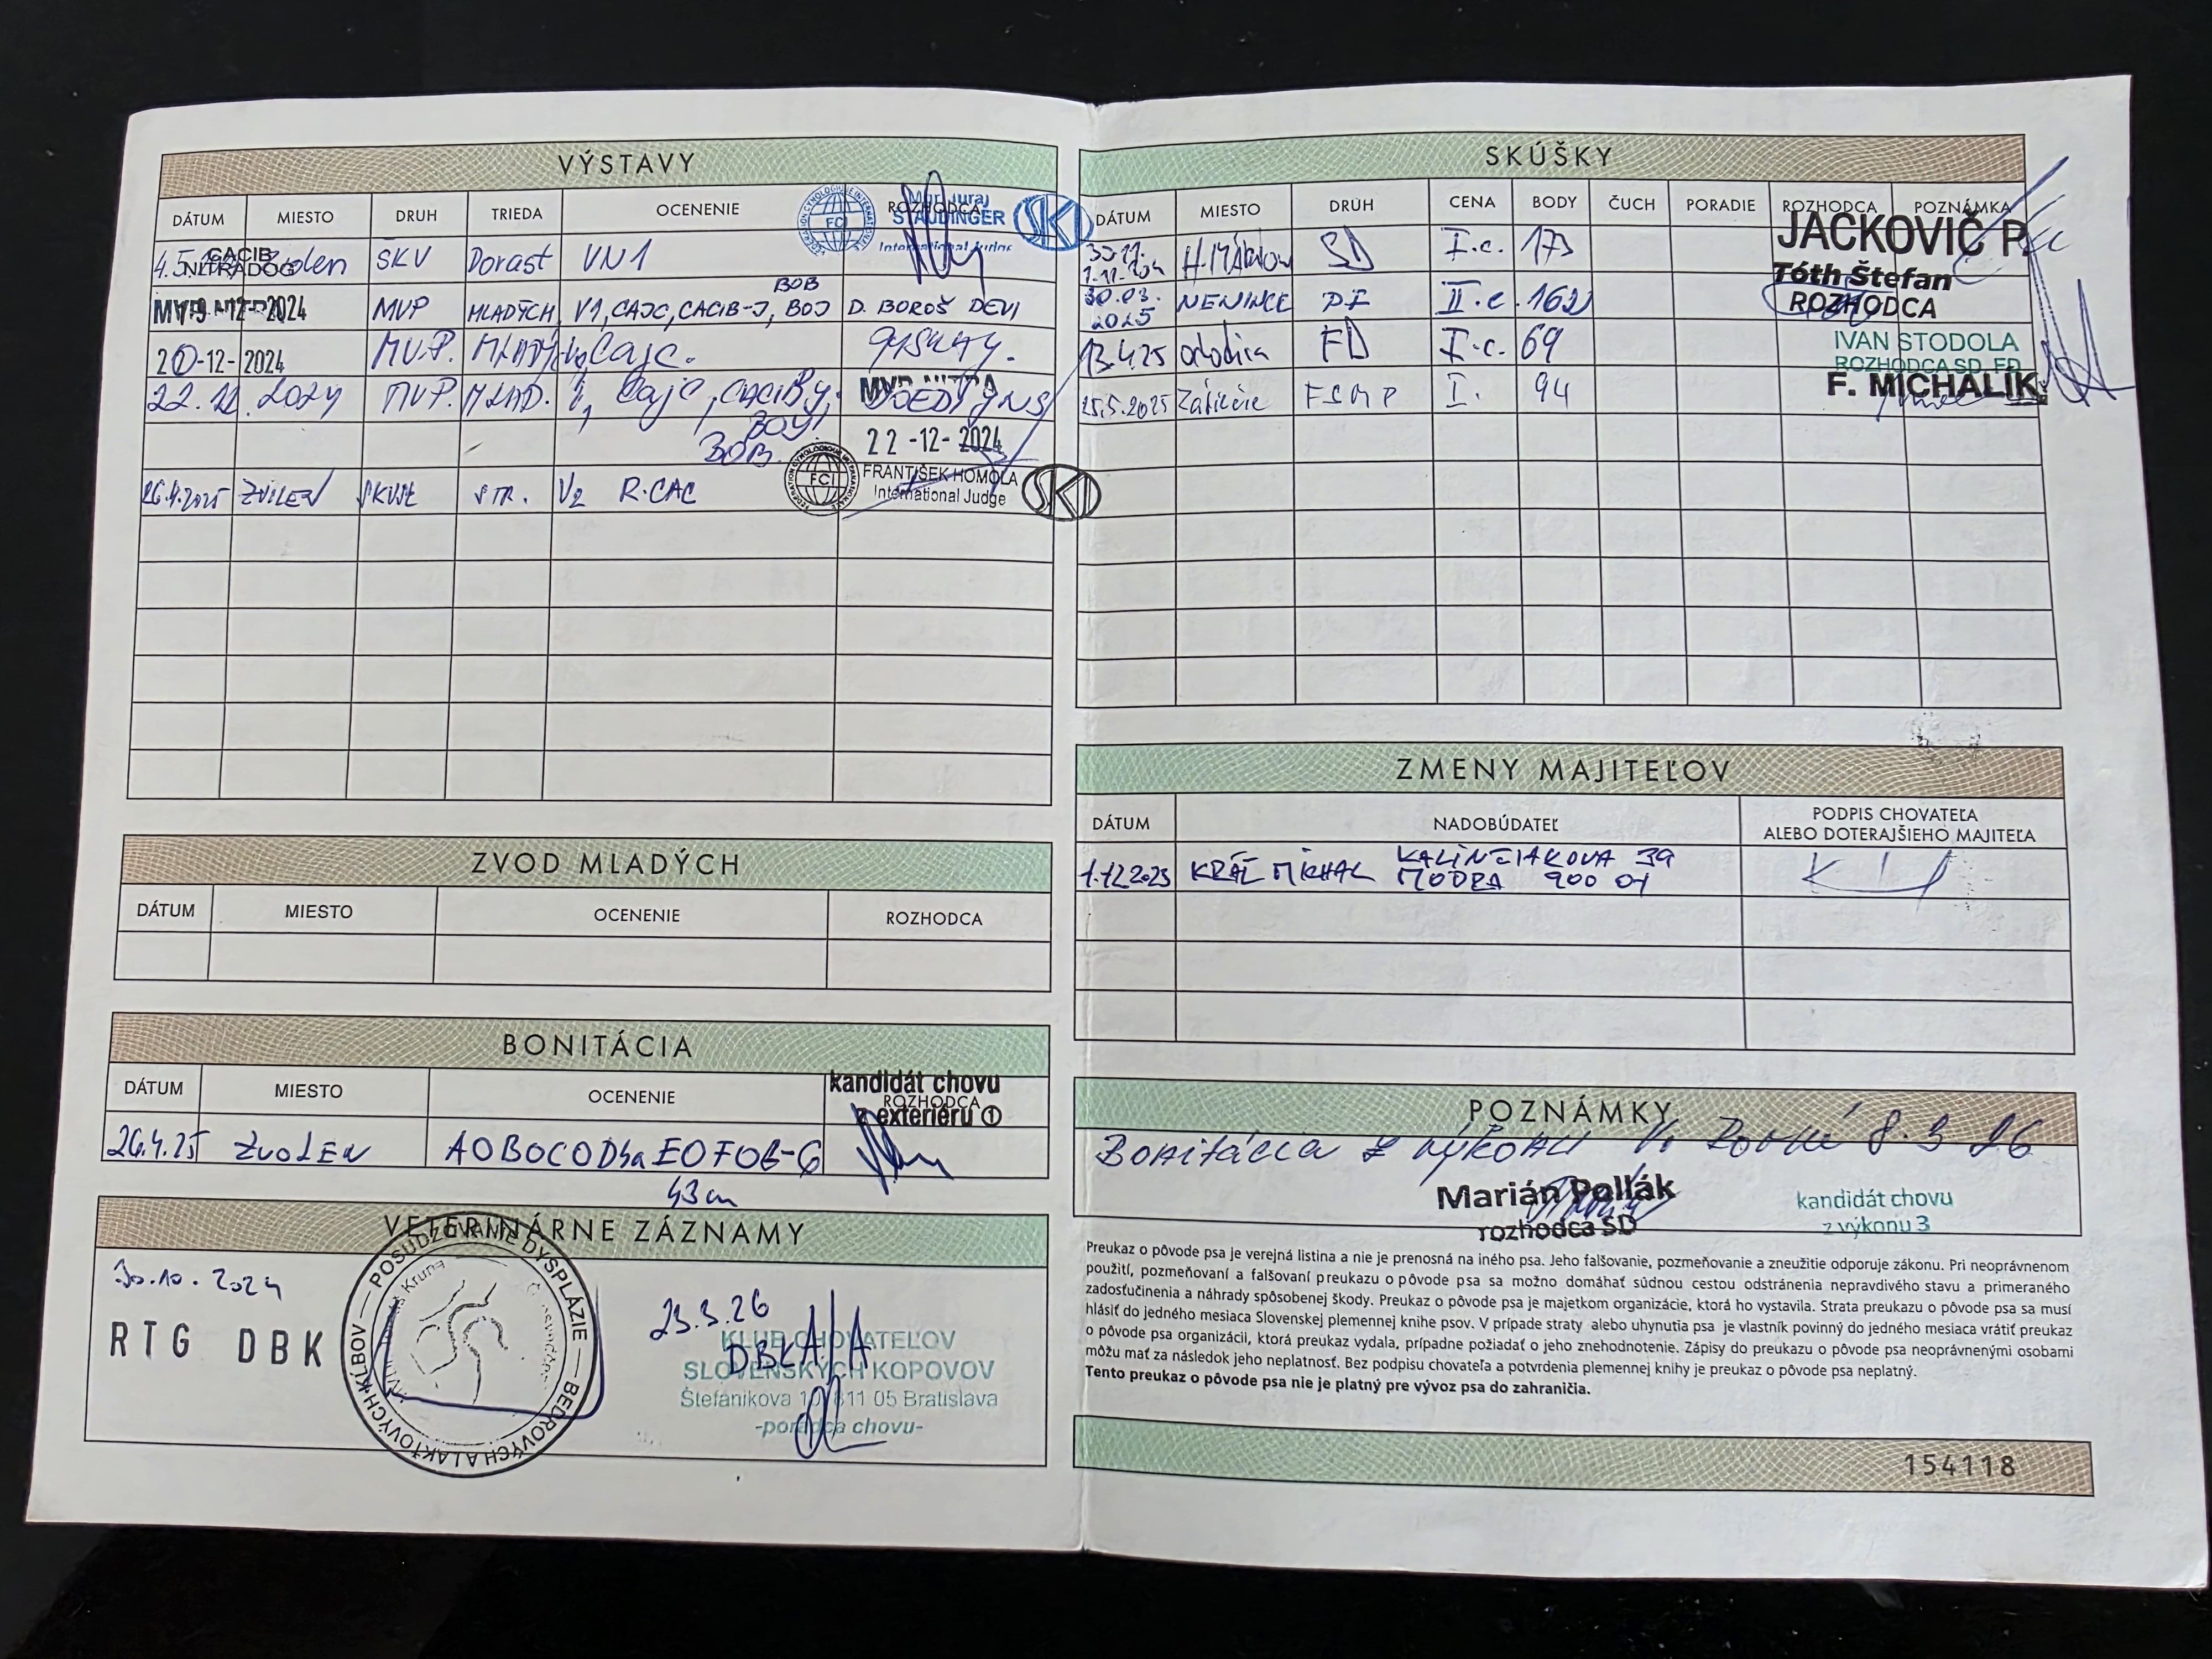 VÝSTAVY
DÁTUM MIESTO DRUH TRIEDA OCENENIE ROZHODCA
Mvr. Juraj
STAUDINGER
International Judge
FCI
SKJ
4.5. Zvolen SKV Dorast VN1
CACIB
NITRADOG
-12-2024 MVP MLADÝCH V1, CAJC, CACIB-J, BOJ BOB D. BOROŠ DEVI
20-12-2024 M.V.P. CAJC.
22.12.2024 M.V.P. MLAD. CAJC, CACIBJ, BOJ,
BOB.
MVP NITRA
22-12-2024
26.4.2025 ZVOLEN STR. V2 R.CAC
FCI
FRANTIŠEK HOMOLA
International Judge
SKJ
ZVOD MLADÝCH
DÁTUM MIESTO OCENENIE ROZHODCA
BONITÁCIA
DÁTUM MIESTO OCENENIE ROZHODCA
kandidát chovu
z exteriéru ①
26.4.25 ZVOLEN
43 cm
VETERINÁRNE ZÁZNAMY
30.10.2024
RTG DBK
POSUDZOVANIE DYSPLÁZIE — BEDROVÝCH A LAKŤOVÝCH KĹBOV
23.3.26
DBK A/A
KLUB CHOVATEĽOV
SLOVENSKÝCH KOPOVOV
Štefánikova 10, 811 05 Bratislava
-poradca chovu-
SKÚŠKY
DÁTUM MIESTO DRUH CENA BODY ČUCH PORADIE ROZHODCA POZNÁMKA
SD I.c. 173 JACKOVIČ P.
30.03.2025 NENINCE II.c. 162 Tóth Štefan
ROZHODCA
13.4.25 FD I.c. 69 IVAN STODOLA
ROZHODCA SD, FD
25.5.2025 I. 94 F. MICHALÍK
ZMENY MAJITEĽOV
DÁTUM NADOBÚDATEĽ PODPIS CHOVATEĽA
ALEBO DOTERAJŠIEHO MAJITEĽA
1.12.2025 KRÁĽ MICHAL KALINČIAKOVA 39
MODRA 900 01
POZNÁMKY
Bonitácia z výkonu 8.3.26
Marián Pollák
rozhodca SD
kandidát chovu
z výkonu 3
Preukaz o pôvode psa je verejná listina a nie je prenosná na iného psa. Jeho falšovanie, pozmeňovanie a zneužitie odporuje zákonu. Pri neoprávnenom
použití, pozmeňovaní a falšovaní preukazu o pôvode psa sa možno domáhať súdnou cestou odstránenia nepravdivého stavu a primeraného
zadosťučinenia a náhrady spôsobenej škody. Preukaz o pôvode psa je majetkom organizácie, ktorá ho vystavila. Strata preukazu o pôvode psa sa musí
hlásiť do jedného mesiaca Slovenskej plemennej knihe psov. V prípade straty alebo uhynutia psa je vlastník povinný do jedného mesiaca vrátiť preukaz
o pôvode psa organizácii, ktorá preukaz vydala, prípadne požiadať o jeho znehodnotenie. Zápisy do preukazu o pôvode psa neoprávnenými osobami
môžu mať za následok jeho neplatnosť. Bez podpisu chovateľa a potvrdenia plemennej knihy je preukaz o pôvode psa neplatný.
Tento preukaz o pôvode psa nie je platný pre vývoz psa do zahraničia.
154118